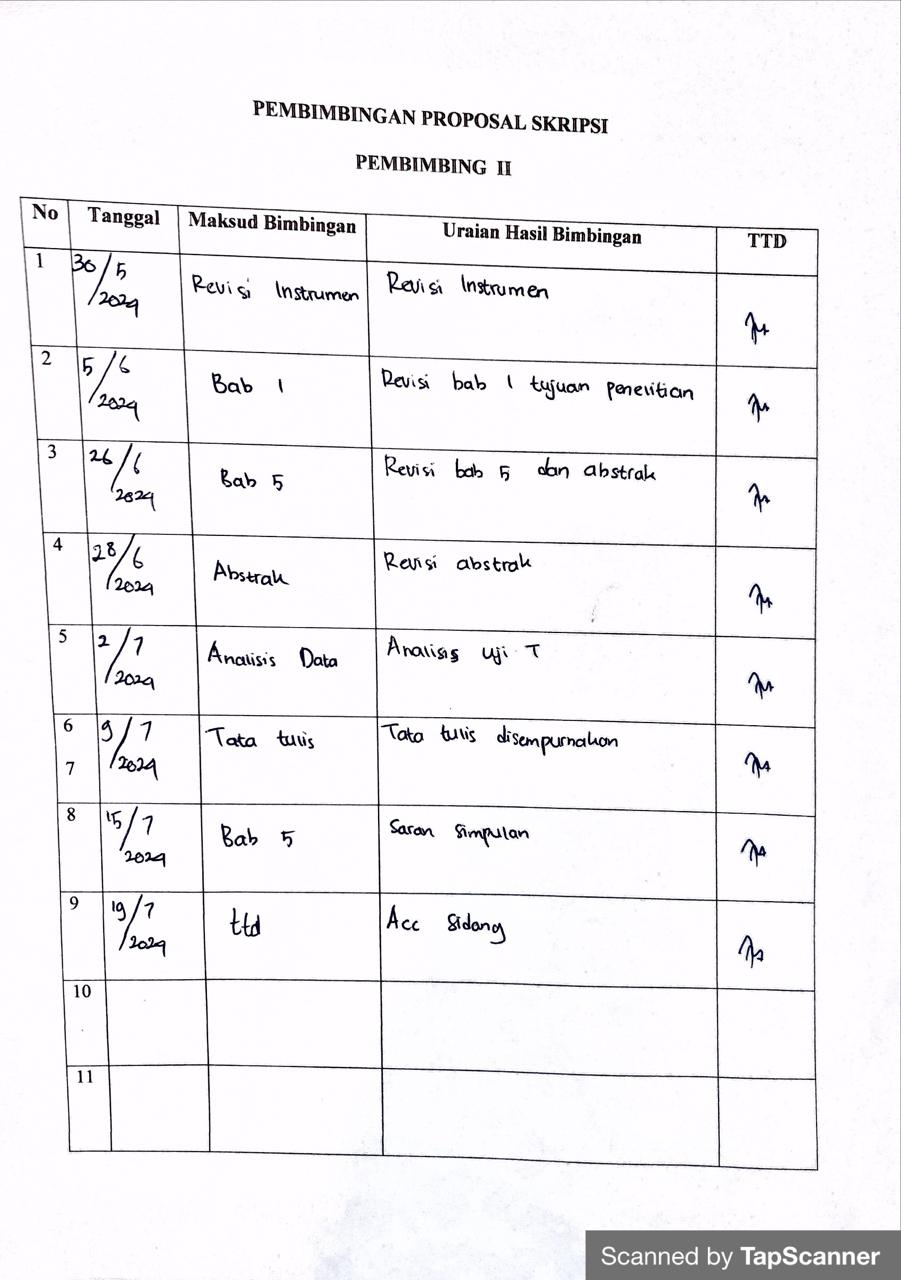 PEMBIMBINGAN PROPOSAL SKRIPSI
PEMBIMBING II
No Tanggal Maksud Bimbingan Uraian Hasil Bimbingan TTD
1 30/5/2024 Revisi Instrumen Revisi Instrumen
2 5/6/2024 Bab 1 Revisi bab 1 tujuan penelitian
3 26/6/2024 Bab 5 Revisi bab 5 dan abstrak
4 28/6/2024 Abstrak Revisi abstrak
5 2/7/2024 Analisis Data Analisis Uji T
6 9/7/2024 Tata tulis Tata tulis disempurnakan
7
8 15/7/2024 Bab 5 Saran Simpulan
9 19/7/2024 ttd Acc Sidang
10
11
Scanned by TapScanner